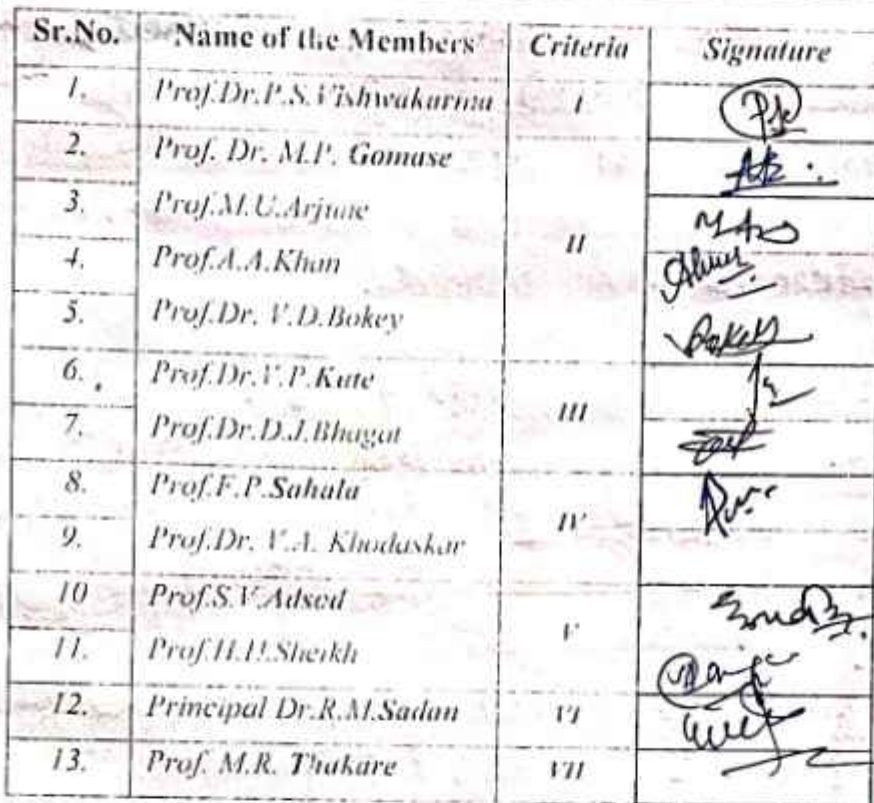 Sr.No. Name of the Members Criteria Signature
1. Prof.Dr.P.S.Vishwakarma I
2. Prof. Dr. M.P. Gomase
3. Prof.M.U.Arjune
II
4. Prof.A.A.Khan
5. Prof.Dr. V.D.Bokey Bokey
6. Prof.Dr.V.P.Kute
III
7. Prof.Dr.D.J.Bhagat
8. Prof.F.P.Sahala
IV
9. Prof.Dr. V.A. Khodaskar
10 Prof.S.V.Adsod
V
11. Prof.H.U.Sheikh
12. Principal Dr.R.M.Sadan VI
13. Prof. M.R. Thakare VII